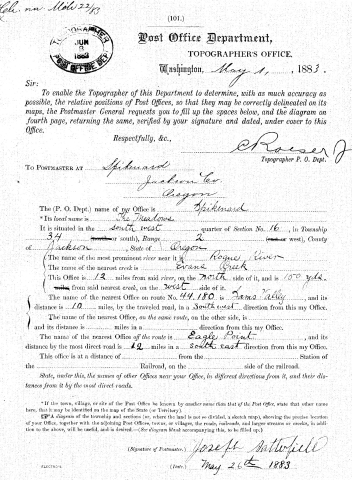 (101.)
TOPOGRAPHER
JUN
9
1883
POST OFFICE DEP.
Post Office Department,
TOPOGRAPHER'S OFFICE.
Washington, May 1, 1883.
Sir:
To enable the Topographer of this Department to determine, with as much accuracy as
possible, the relative positions of Post Offices, so that they may be correctly delineated on its
maps, the Postmaster General requests you to fill up the spaces below, and the diagram on
fourth page, returning the same, verified by your signature and dated, under cover to this
Office.
Respectfully, &c.,
C Roeser Jr
Topographer P. O. Dept.
TO POSTMASTER AT Spikenard
Jackson Co.
Oregon
The (P. O. Dept.) name of my Office is Spikenard
*Its local name is The Meadows
It is situated in the south west quarter of Section No. 16, in Township
34 south), Range 2 west), County
of Jackson, State of Oregon
The name of the most prominent river near it is Rogue River
The name of the nearest creek is Evans Creek
This Office is 12 miles from said river, on the north side of it, and is 100 yds.
from said nearest creek, on the west side of it.
The name of the nearest Office on route No. 44,180 is Sams Valley, and its
distance is 10 miles, by the traveled road, in a direction from this my Office.
The name of the nearest Office, on the same route, on the other side, is
and its distance is miles in a direction from this my Office.
The name of the nearest Office off the route is Eagle Point, and its
distance by the most direct road is miles in a south east direction from this my Office.
This office is at a distance of from the Station of
the Railroad, on the side of the railroad.
State, under this, the names of other Offices near your Office, in different directions from it, and their dis-
tances from it by the most direct roads.
*If the town, village, or site of the Post Office be known by another name than that of the Post Office, state that other name
here, that it may be identified on the map of the State (or Territory).
A diagram of the township and sections (or, where the land is not so divided, a sketch map), showing the precise location
of your Office, together with the adjoining Post Offices, towns, or villages, the roads, railroads, and larger streams or creeks, in addi-
tion to the above, will be useful, and is desired.—(See diagram blank accompanying this, to be filled up.)
(Signature of Postmaster.) Joseph Satterfield
(Date.) May 26th 1883